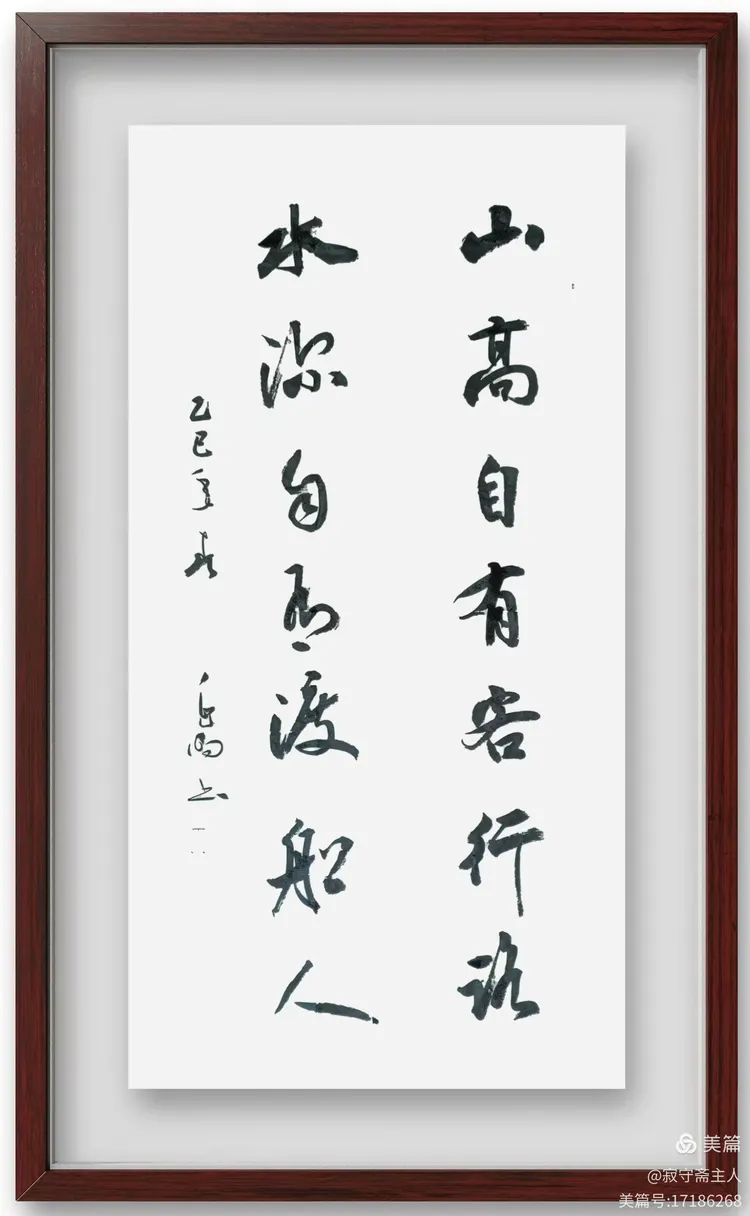 山高自有客行路
水深自有渡船人
乙巳夏
书
美篇
@寂守斋主人
美篇号:17186268